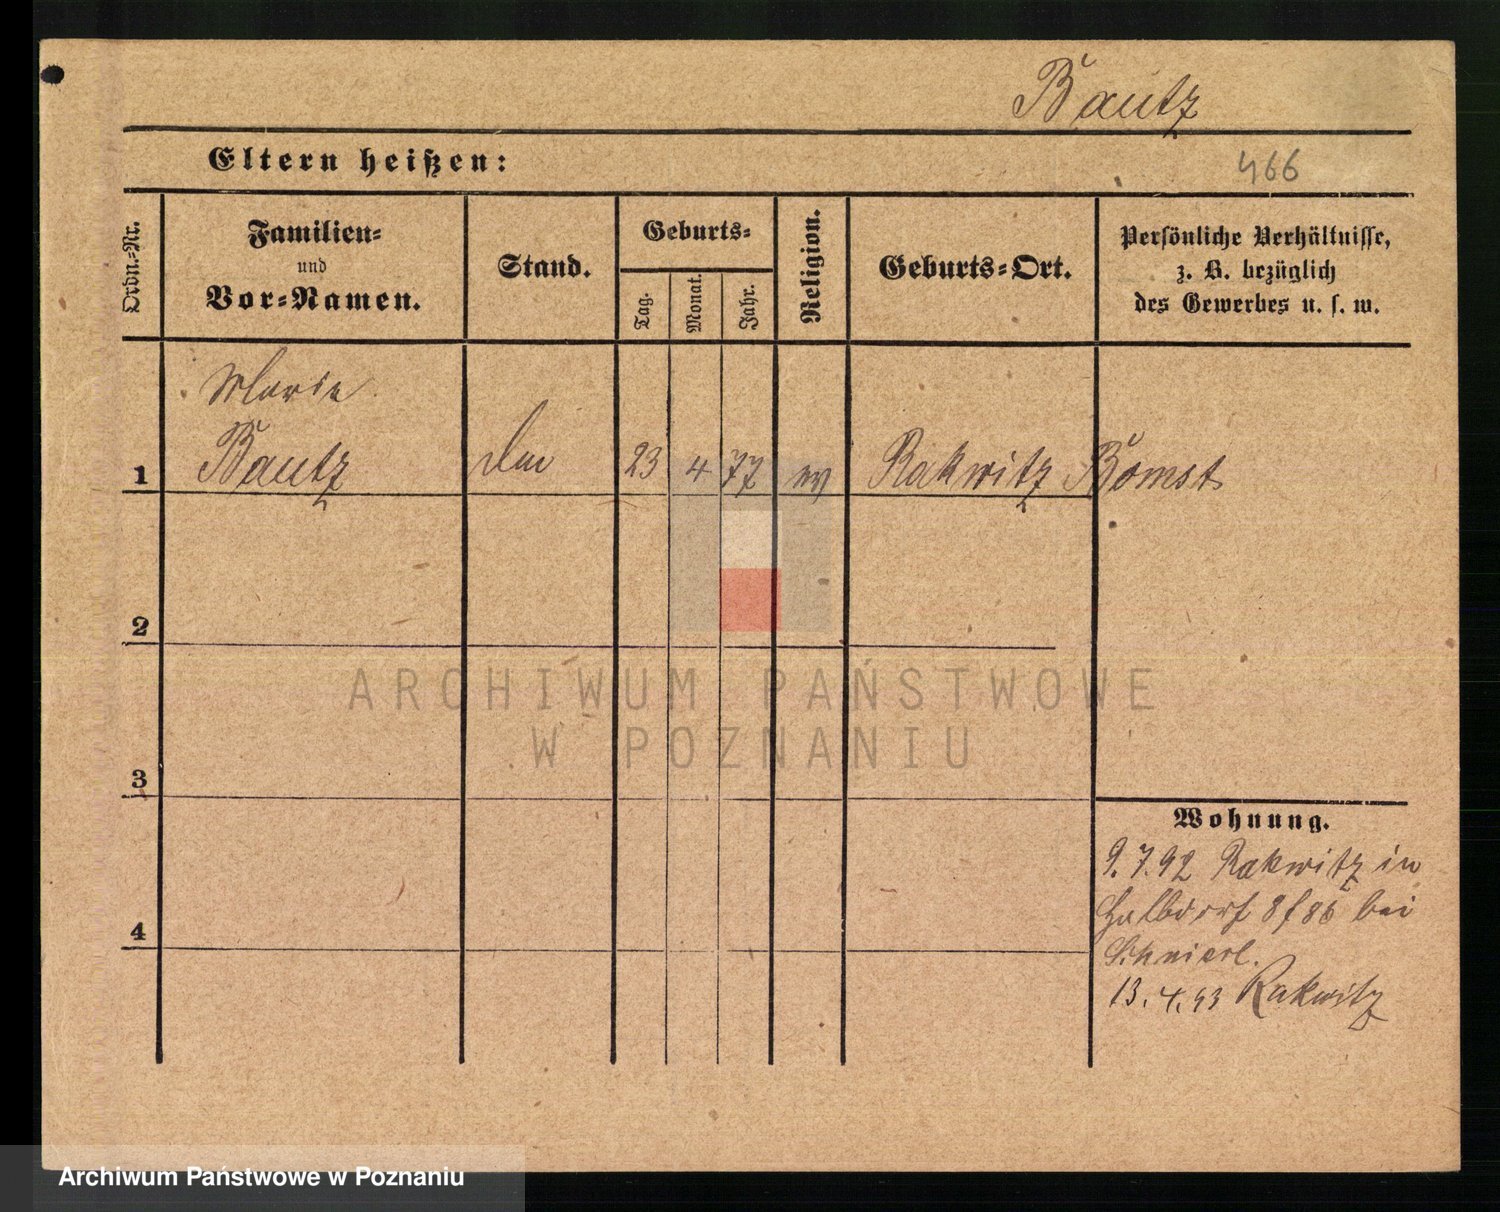 Bautz
Eltern heißen:
466
Ordn.-Nr.
Familien-
und
Vor-Namen.
Stand.
Geburts-
Tag.
Monat.
Jahr.
Religion.
Geburts-Ort.
Persönliche Verhältnisse,
z. B. bezüglich
des Gewerbes u. s. w.
Marie
1 Bautz 23 4 77 ev Rakwitz Bomst
2
ARCHIWUM PAŃSTWOWE
W POZNANIU
3
Wohnung.
9.7.92 Rakwitz in
Halbdorf 8 f 86 bei
4
13.4.93 Rakwitz
Archiwum Państwowe w Poznaniu